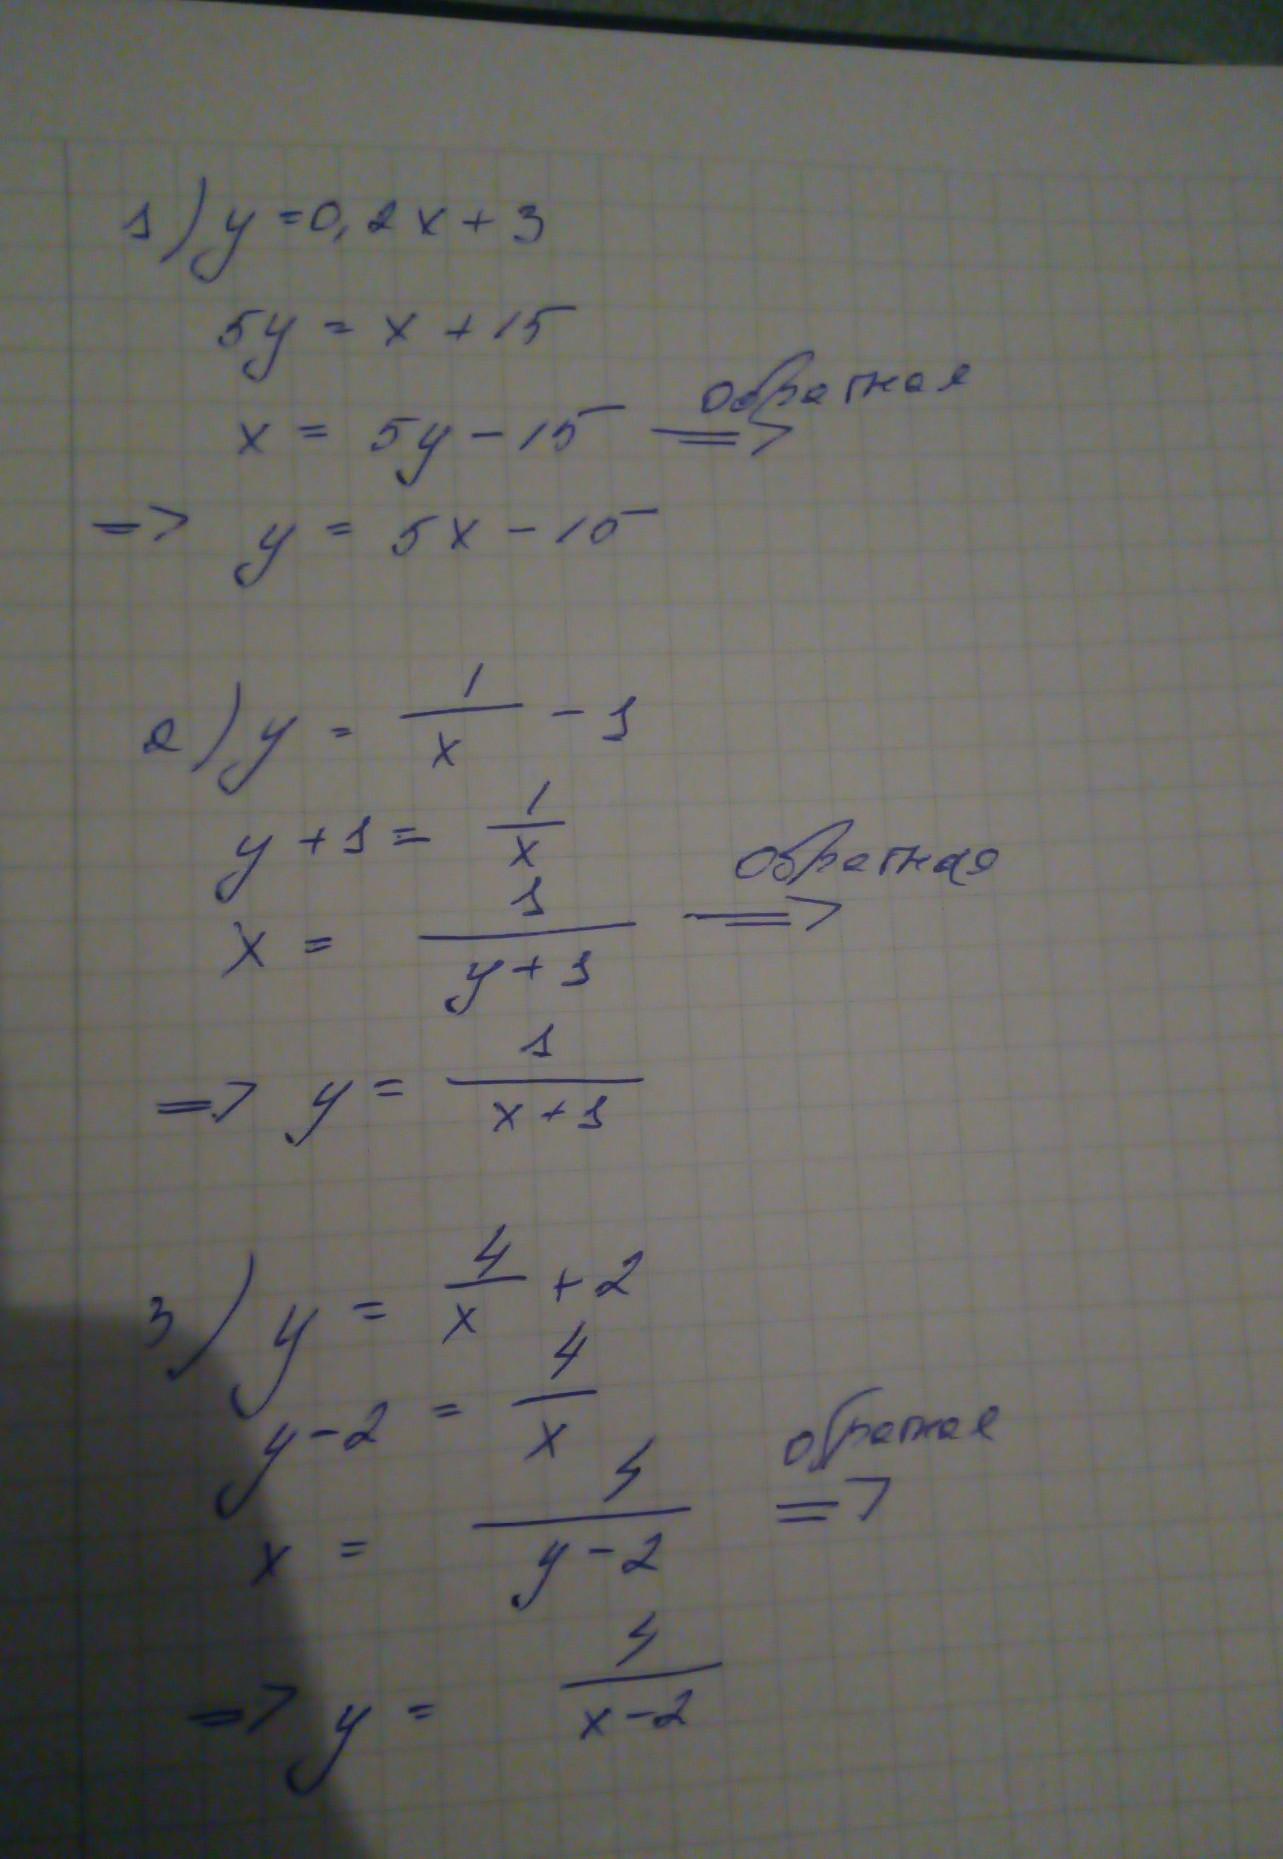 1) y = 0,2x + 3
5y = x + 15
x = 5y - 15 => обратная
=> y = 5x - 15
2) y = 1/x - 1
y + 1 = 1/x
x = 1/(y + 1) => обратная
=> y = 1/(x + 1)
3) y = 4/x + 2
y - 2 = 4/x
x = 4/(y - 2) => обратная
=> y = 4/(x - 2)